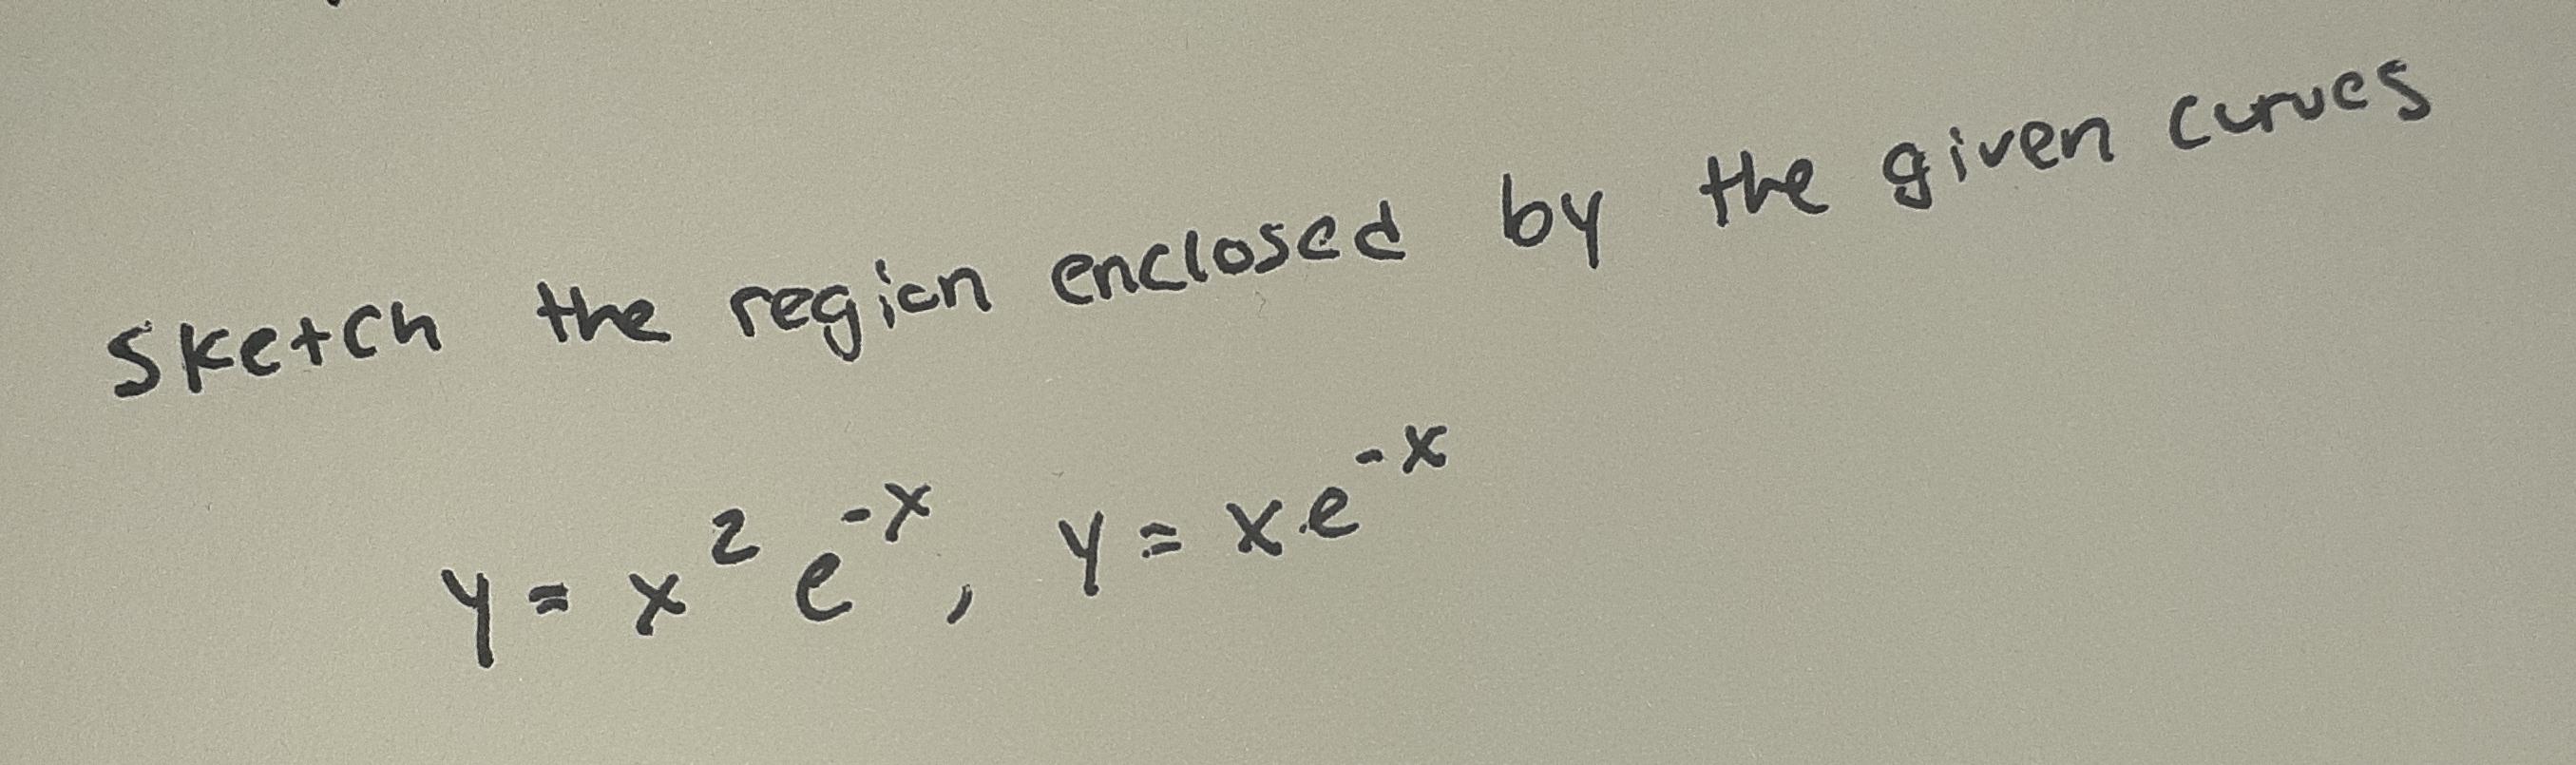 Sketch the region enclosed by the given curves
y = x² e⁻ˣ, y = xe⁻ˣ